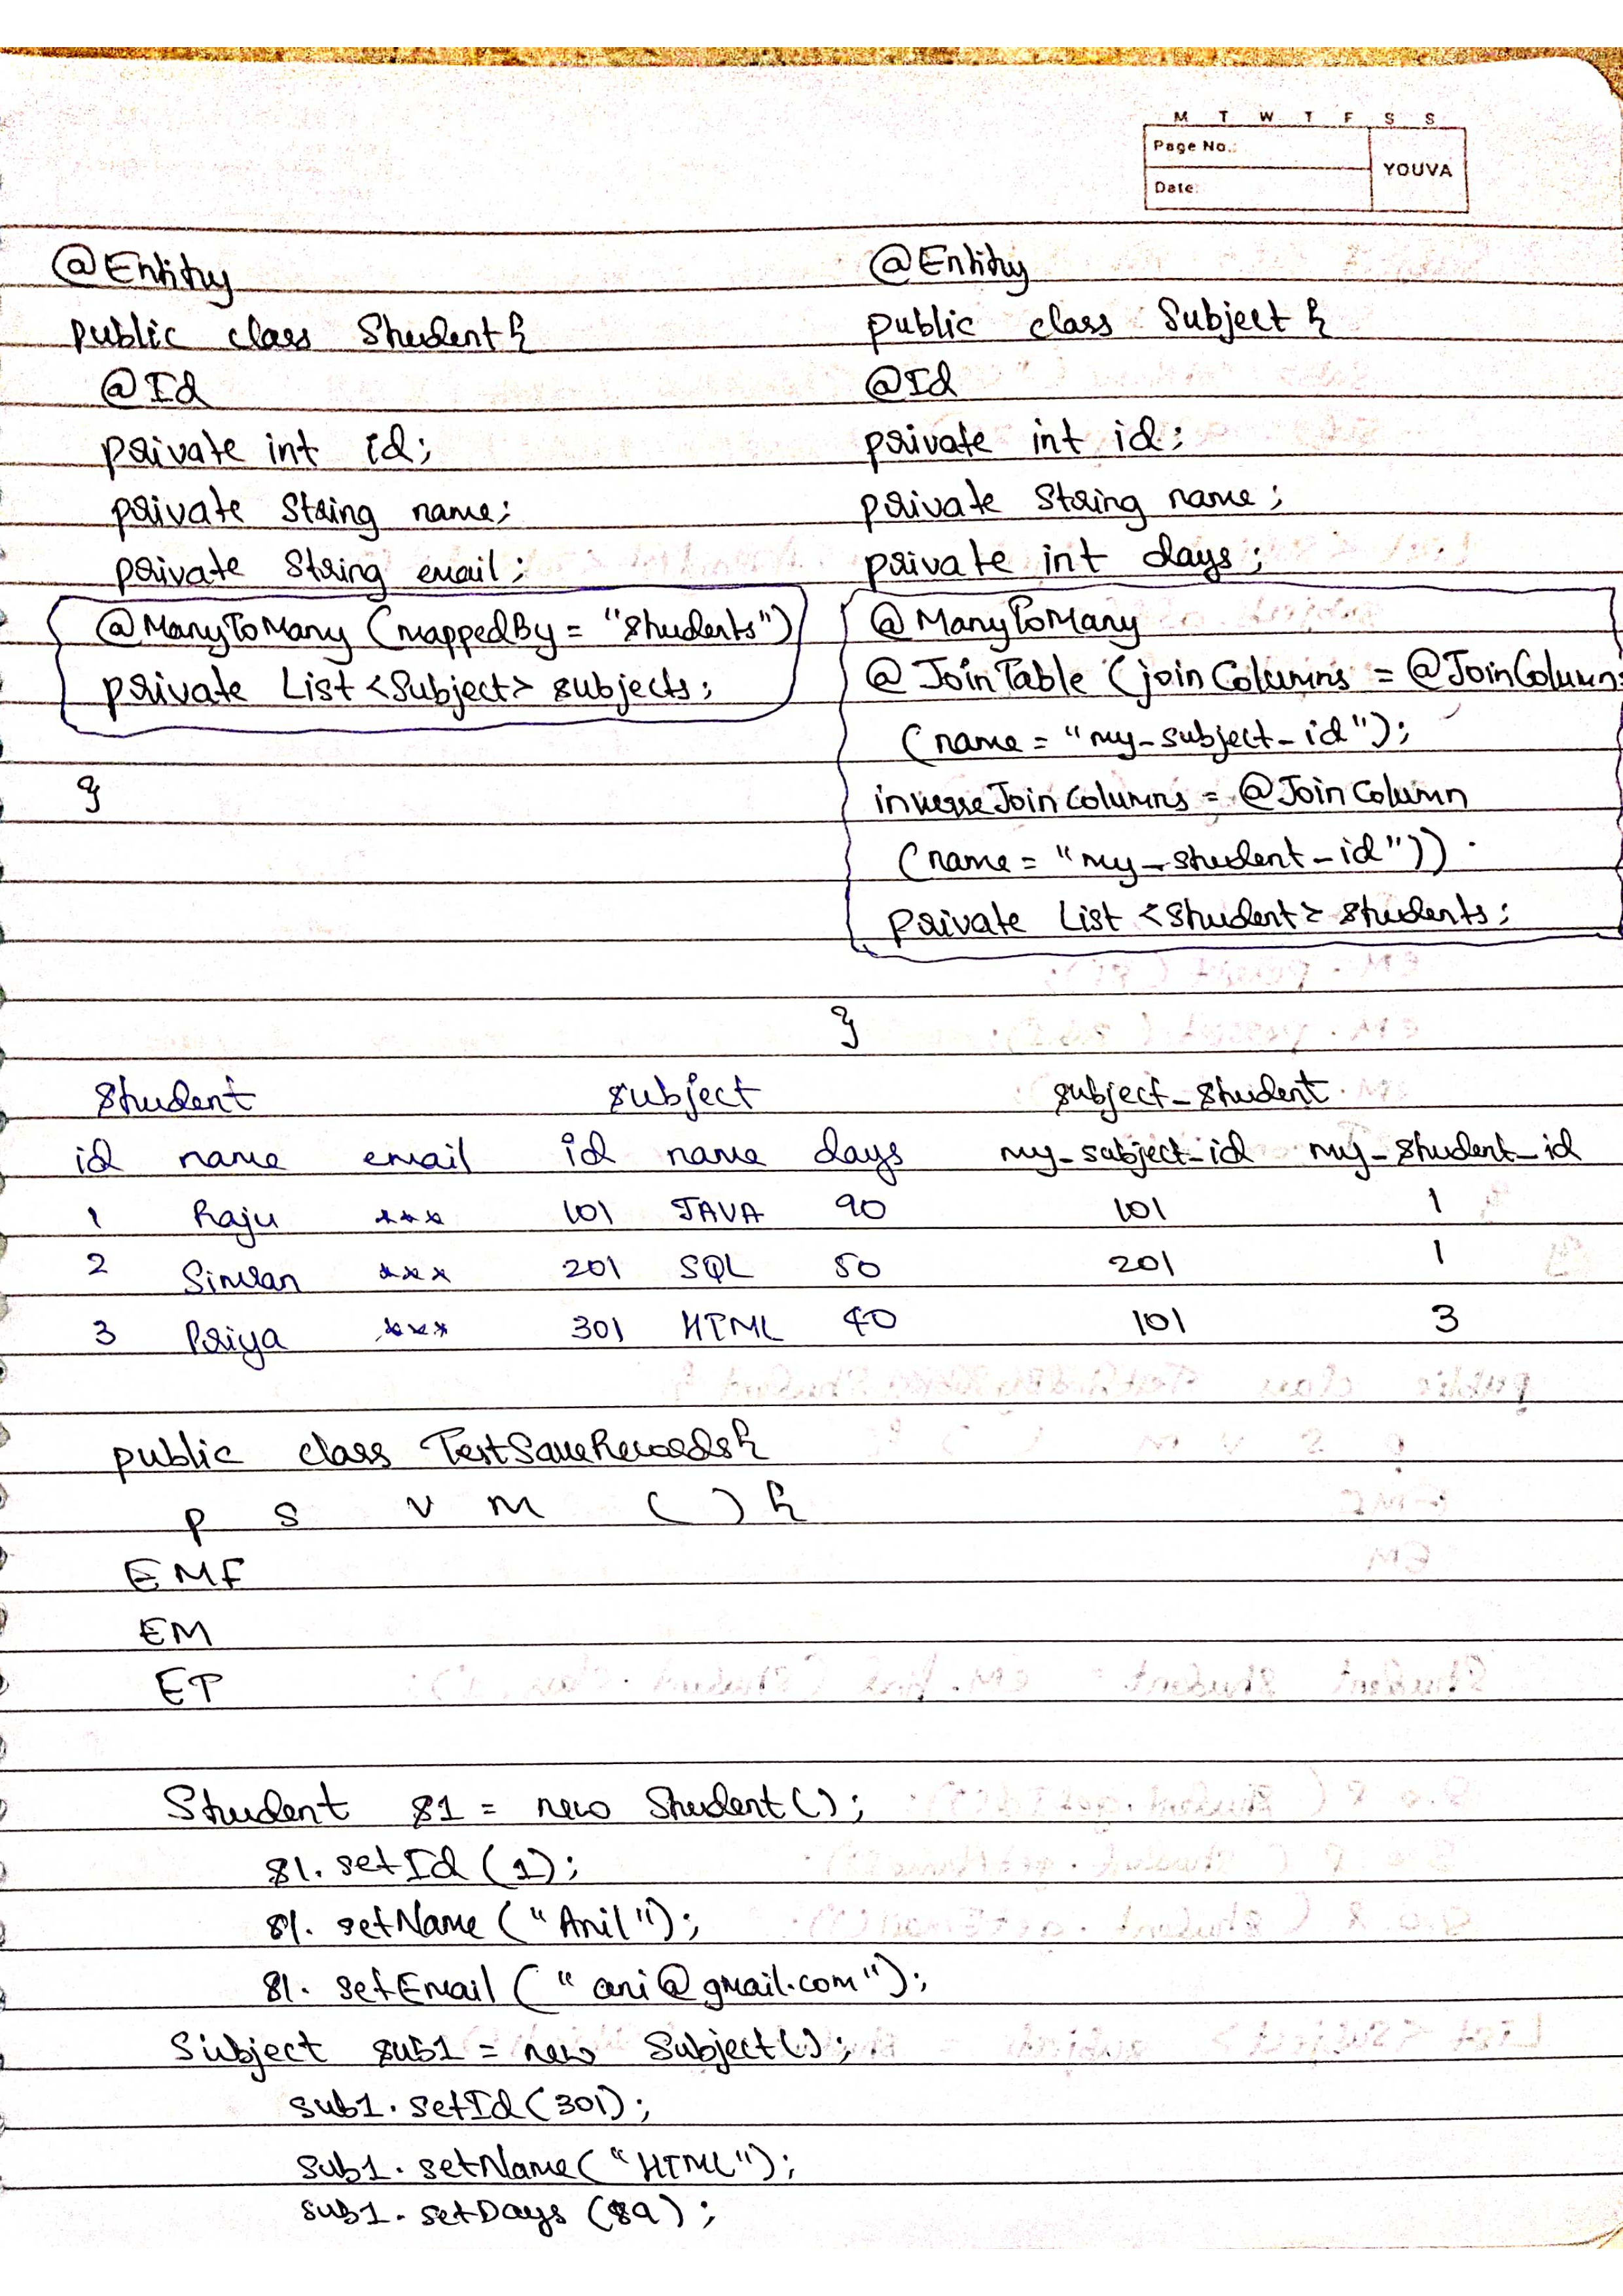 M T W T F S S
Page No.:
YOUVA
Date:
@Entity
public class Student {
@Id
private int id;
private String name;
private String email;
@ManyToMany (mappedBy = "students")
private List <Subject> subjects;
}
@Entity
public class Subject {
@Id
private int id;
private String name;
private int days;
@ManyToMany
@JoinTable (joinColumns = @JoinColumn
(name = "my_subject_id");
inverseJoinColumns = @JoinColumn
(name = "my_student_id"))
private List <Student> students;
}
Student subject subject_student
id name email id name days my_subject_id my_student_id
1 Raju *** 101 JAVA 90 101 1
2 Simran *** 201 SQL 50 201 1
3 Priya *** 301 HTML 40 101 3
public class TestSaveRecords {
p s v m ( ) {
EMF
EM
ET
Student s1 = new Student();
s1. setId (1);
s1. setName ("Anil");
s1. setEmail ("ani@gmail.com");
Subject sub1 = new Subject();
sub1. setId (301);
sub1. setName ("HTML");
sub1. setDays (89);